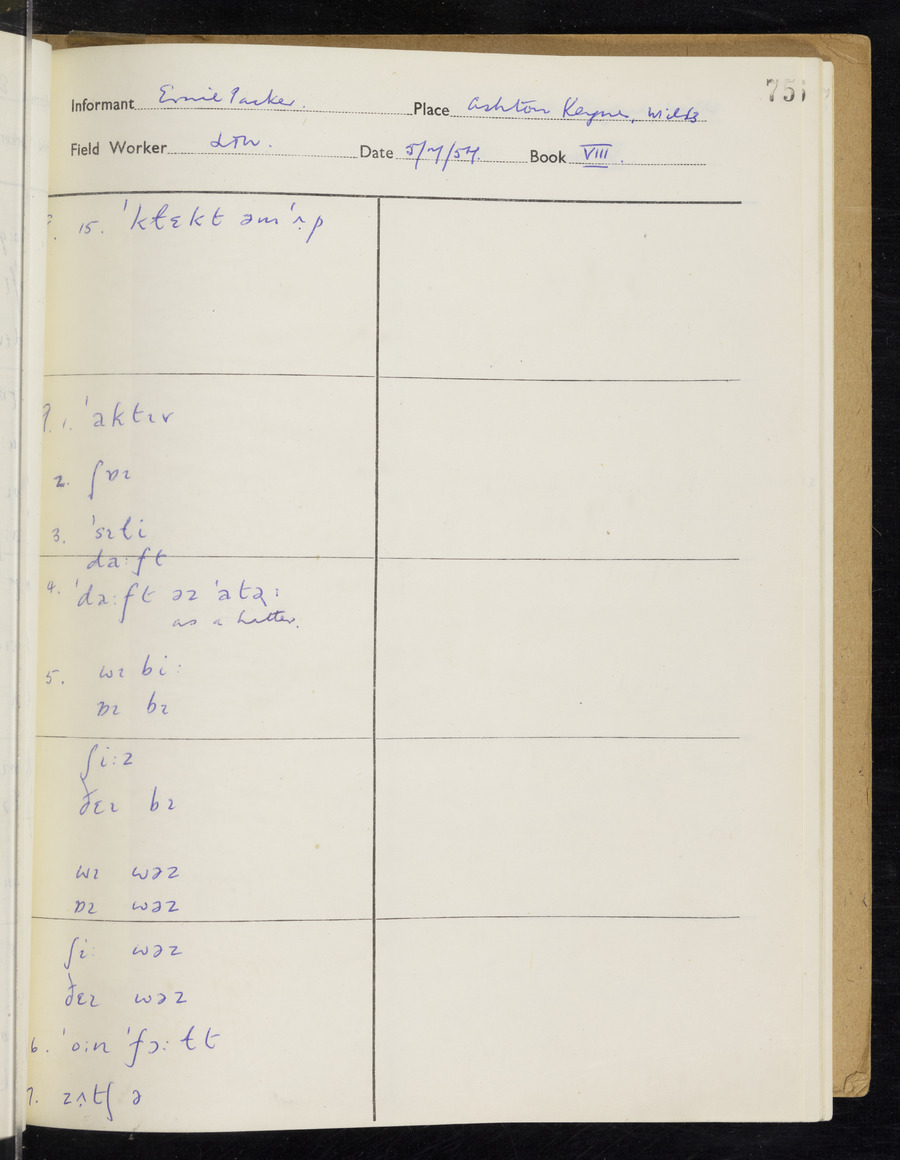 751
Informant Ernie Packer. Place Ashton Keynes, Wilts
Field Worker Date 5/7/57. Book VIII.
15. ˈkɫɛkt əmˈʌ̣p
9. 1. ˈaktɪv
2. ʃɒɪ
3. ˈsɪɫi
da:ft
4. ˈda:ft əz ˈatə̢:
as a hatter.
5. wɪ bi:
ɒɪ bɪ
ʃi:z
ðɛɪ bɪ
wɪ wəz
ɒɪ wəz
ʃi: wəz
ðɛɪ wəz
6. ˈo:n ˈfɔ:ɫt
7. zʌ̣tʃ ə